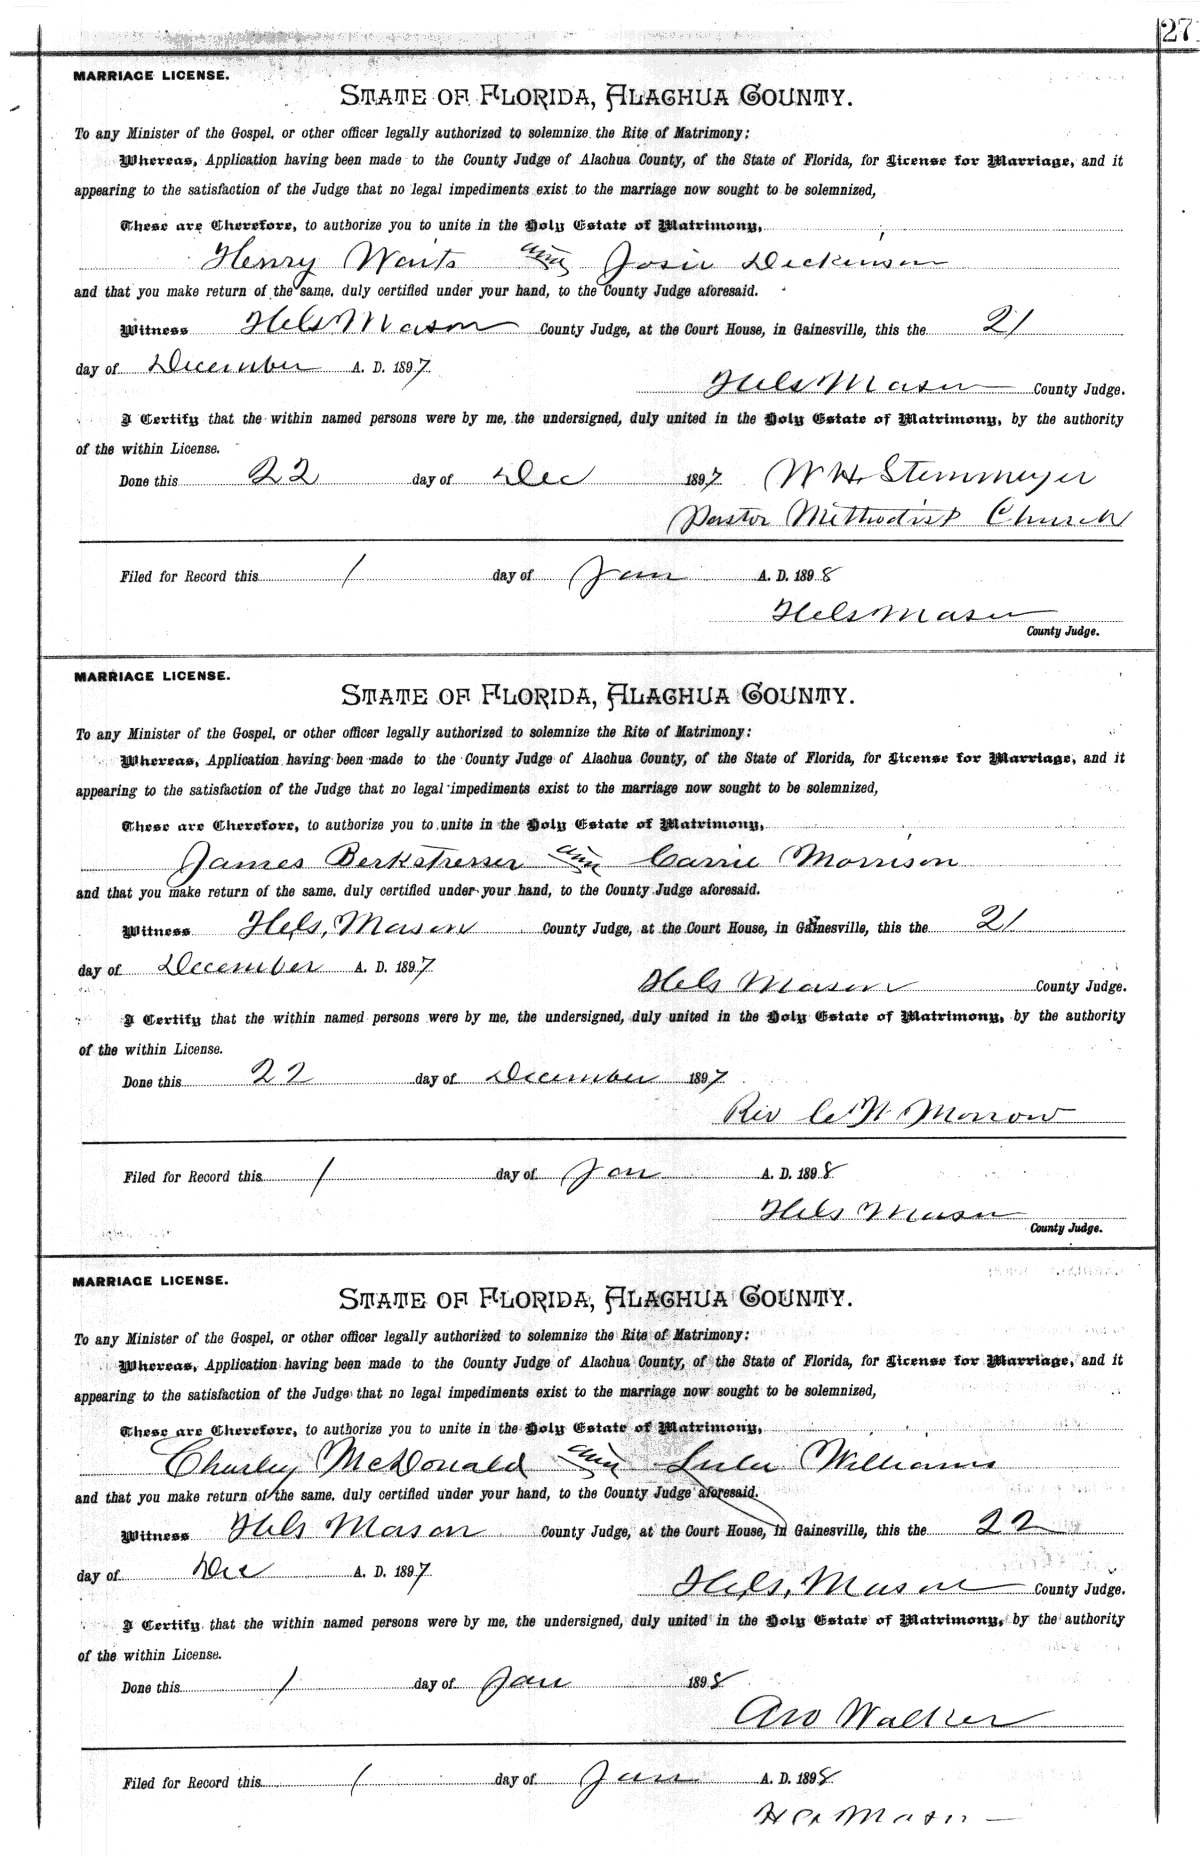 27
MARRIAGE LICENSE.
STATE OF FLORIDA, ALACHUA COUNTY.
To any Minister of the Gospel, or other officer legally authorized to solemnize the Rite of Matrimony:
Whereas, Application having been made to the County Judge of Alachua County, of the State of Florida, for License for Marriage, and it
appearing to the satisfaction of the Judge that no legal impediments exist to the marriage now sought to be solemnized,
These are Therefore, to authorize you to unite in the Holy Estate of Matrimony,
Henry Waits and Josie Dickinson
and that you make return of the same, duly certified under your hand, to the County Judge aforesaid.
Witness Mason County Judge, at the Court House, in Gainesville, this the 21
day of December A. D. 1897
Mason County Judge.
I Certify that the within named persons were by me, the undersigned, duly united in the Holy Estate of Matrimony, by the authority
of the within License.
Done this 22 day of Dec 1897 W H Steinmeyer
Pastor Methodist Church
Filed for Record this 1 day of Jan A. D. 1898
Mason
County Judge.
MARRIAGE LICENSE.
STATE OF FLORIDA, ALACHUA COUNTY.
To any Minister of the Gospel, or other officer legally authorized to solemnize the Rite of Matrimony:
Whereas, Application having been made to the County Judge of Alachua County, of the State of Florida, for License for Marriage, and it
appearing to the satisfaction of the Judge that no legal impediments exist to the marriage now sought to be solemnized,
These are Therefore, to authorize you to unite in the Holy Estate of Matrimony,
James Berkstresser and Carrie Morrison
and that you make return of the same, duly certified under your hand, to the County Judge aforesaid.
Witness Mason County Judge, at the Court House, in Gainesville, this the 21
day of December A. D. 1897
Mason County Judge.
I Certify that the within named persons were by me, the undersigned, duly united in the Holy Estate of Matrimony, by the authority
of the within License.
Done this 22 day of December 1897
Rev Morrow
Filed for Record this 1 day of Jan A. D. 1898
Mason
County Judge.
MARRIAGE LICENSE.
STATE OF FLORIDA, ALACHUA COUNTY.
To any Minister of the Gospel, or other officer legally authorized to solemnize the Rite of Matrimony:
Whereas, Application having been made to the County Judge of Alachua County, of the State of Florida, for License for Marriage, and it
appearing to the satisfaction of the Judge that no legal impediments exist to the marriage now sought to be solemnized,
These are Therefore, to authorize you to unite in the Holy Estate of Matrimony,
Charley McDonald and Lula Williams
and that you make return of the same, duly certified under your hand, to the County Judge aforesaid.
Witness Mason County Judge, at the Court House, in Gainesville, this the 22
day of Dec A. D. 1897
Mason County Judge.
I Certify that the within named persons were by me, the undersigned, duly united in the Holy Estate of Matrimony, by the authority
of the within License.
Done this 1 day of Jan 1898
Walker
Filed for Record this 1 day of Jan A. D. 1898
Mason